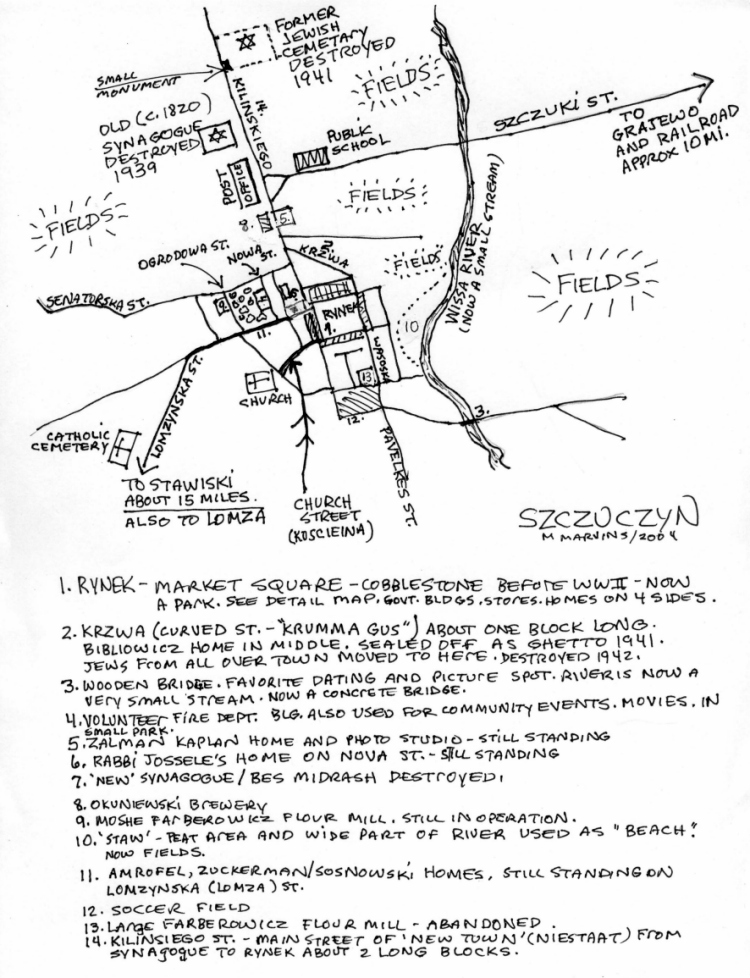 FORMER
JEWISH
CEMETARY
DESTROYED
1941
SMALL
MONUMENT
14.
KILINSKIEGO
FIELDS
SZCZUKI ST.
TO
GRAJEWO
AND RAILROAD
APPROX 10 MI.
OLD (C. 1820)
SYNAGOGUE
DESTROYED
1939
PUBLIC
SCHOOL
POST
OFFICE
FIELDS
FIELDS
8.
5.
2
KRZWA
OGRODOWA ST.
NOWA
ST.
FIELDS
WISSA RIVER
(NOW A SMALL STREAM)
FIELDS
SENATORSKA ST.
9
4
6
RYNEK
1.
10
11.
WASOSKA
LOMZYNSKA ST.
CHURCH
13.
12.
3.
CATHOLIC
CEMETERY
PAVELKES ST.
TO STAWISKI
ABOUT 15 MILES.
ALSO TO LOMZA
CHURCH
STREET
(KOSCIEINA)
SZCZUCZYN
M MARVINS/2004
1. RYNEK - MARKET SQUARE - COBBLESTONE BEFORE WWII - NOW
A PARK. SEE DETAIL MAP. GOVT. BLDGS. STORES. HOMES ON 4 SIDES.
2. KRZWA (CURVED ST. - "KRUMMA GUS") ABOUT ONE BLOCK LONG.
BIBLIOWICZ HOME IN MIDDLE. SEALED OFF AS GHETTO 1941.
JEWS FROM ALL OVER TOWN MOVED TO HERE. DESTROYED 1942.
3. WOODEN BRIDGE. FAVORITE DATING AND PICTURE SPOT. RIVER IS NOW A
VERY SMALL STREAM. NOW A CONCRETE BRIDGE.
4. VOLUNTEER FIRE DEPT. BLG. ALSO USED FOR COMMUNITY EVENTS. MOVIES. IN
SMALL PARK.
5. ZALMAN KAPLAN HOME AND PHOTO STUDIO - STILL STANDING
6. RABBI JOSSELE'S HOME ON NOVA ST. - STILL STANDING
7. 'NEW' SYNAGOGUE / BES MIDRASH DESTROYED.
8. OKUNIEWSKI BREWERY
9. MOSHE FARBEROWICZ FLOUR MILL. STILL IN OPERATION.
10. 'STAW' - PEAT AREA AND WIDE PART OF RIVER USED AS "BEACH".
NOW FIELDS.
11. AMROFEL, ZUCKERMAN/SOSNOWSKI HOMES, STILL STANDING ON
LOMZYNSKA (LOMZA) ST.
12. SOCCER FIELD
13. LARGE FARBEROWICZ FLOUR MILL - ABANDONED.
14. KILINSIEGO ST. - MAIN STREET OF 'NEW TOWN' (NIESTAAT) FROM
SYNAGOGUE TO RYNEK ABOUT 2 LONG BLOCKS.